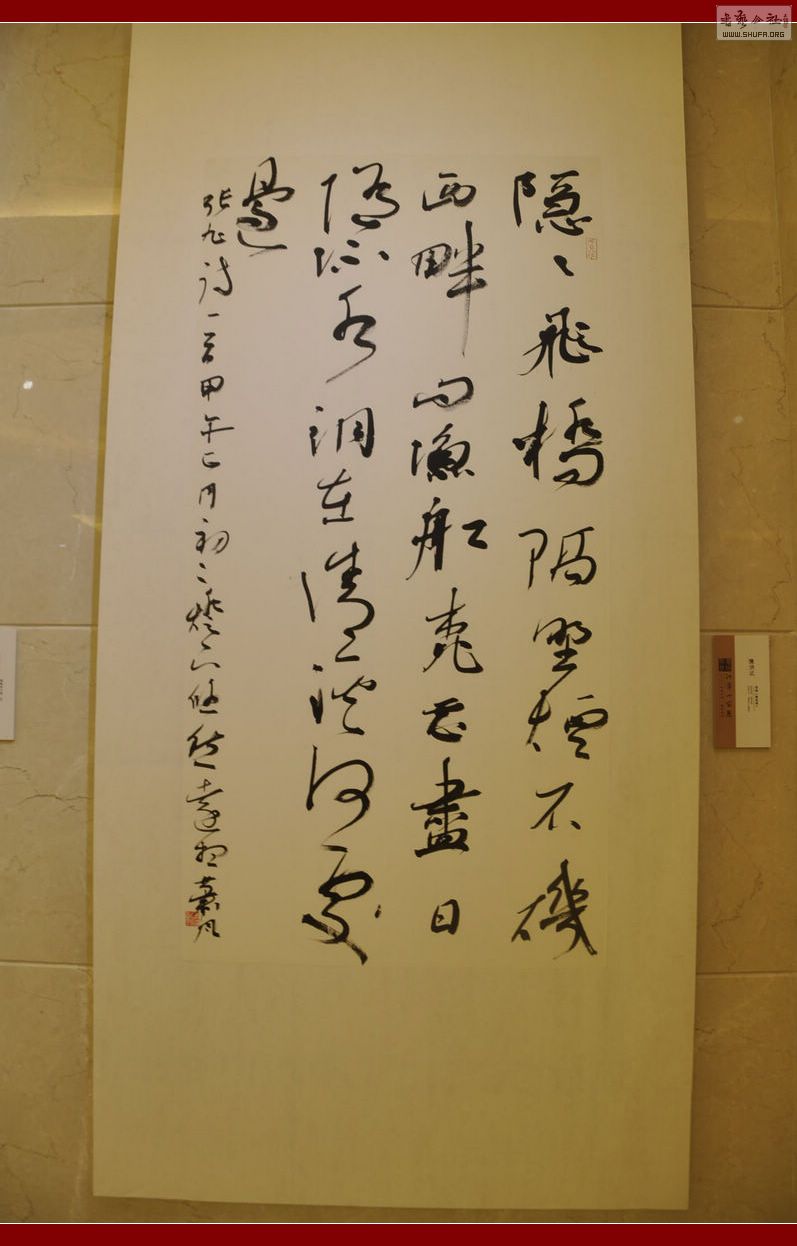 書藝公社
WWW.SHUFA.ORG
隱〻飛橋隔野煙石磯
西畔問漁船桃花盡日
隨流水洞在清谿何處
邊
張旭詩一首甲午二月初二